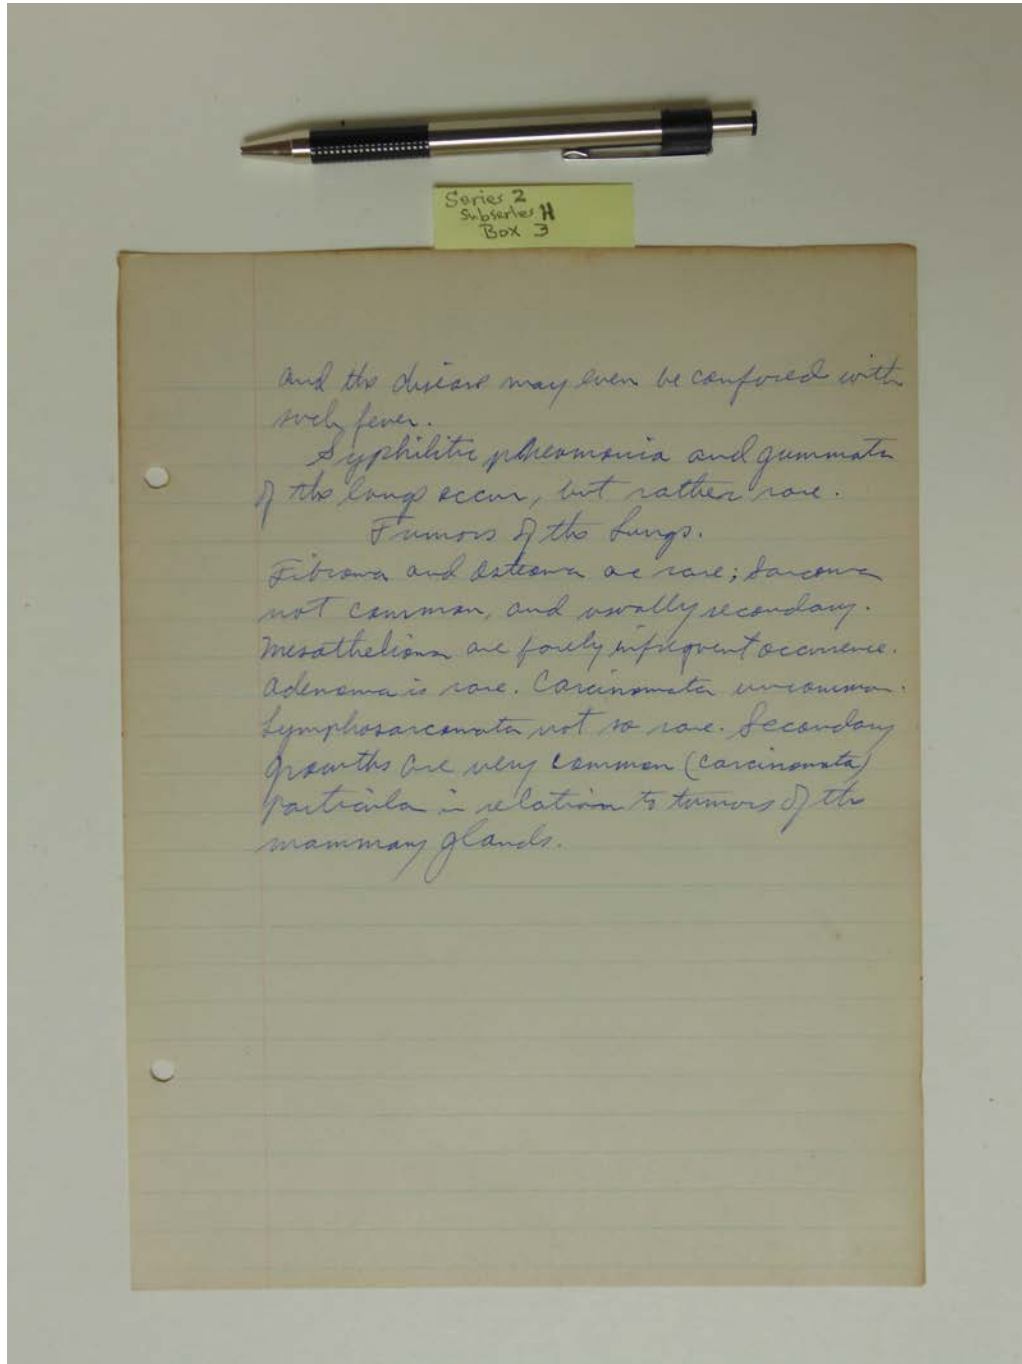 Series 2
Subseries H
Box 3
and the disease may even be confused with
such fever.
Syphilitic pneumonia and gummata
of the lungs occur, but rather rare.
Tumors of the Lungs.
Fibroma and Osteoma are rare; Sarcoma
not common, and usually secondary.
Mesothelioma are infrequent occurrence.
Adenoma is rare. Carcinomata uncommon.
Lymphosarcomata not so rare. Secondary
growths are very common (carcinomata)
particula in relation to tumors of the
mammary glands.